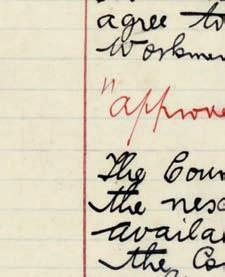 agree to
Workmen
"approve
The Coun
the reso
availa
the Co